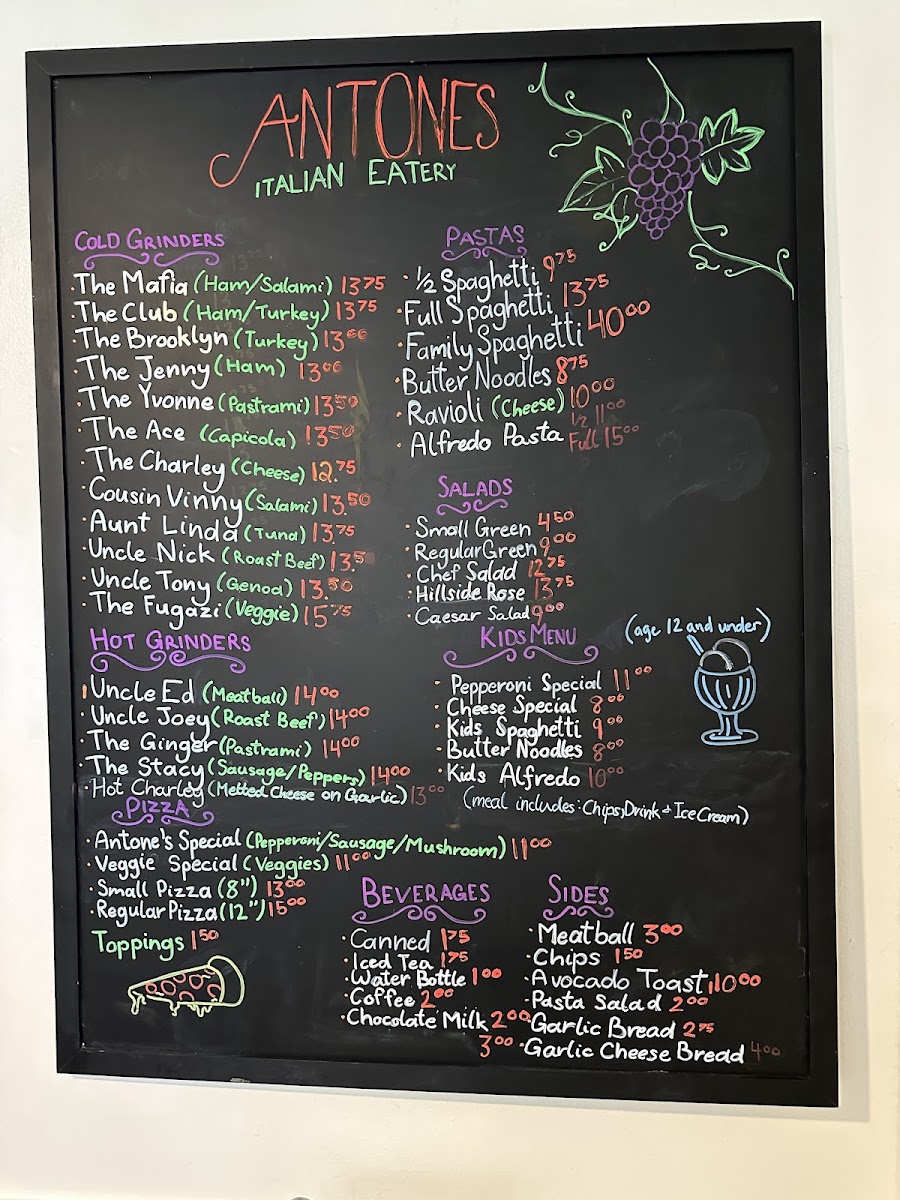 ANTONES
ITALIAN EATERY
COLD GRINDERS
·The Mafia (Ham/Salami) 13 75
·The Club (Ham/Turkey) 13 75
·The Brooklyn (Turkey) 13 00
·The Jenny (Ham) 13 00
·The Yvonne (Pastrami) 13 50
·The Ace (Capicola) 13 50
·The Charley (Cheese) 12.75
·Cousin Vinny (Salami) 13.50
·Aunt Linda (Tuna) 13.75
·Uncle Nick (Roast Beef) 13.50
·Uncle Tony (Genoa) 13.50
·The Fugazi (Veggie) 15 75
HOT GRINDERS
Uncle Ed (Meatball) 14 00
·Uncle Joey (Roast Beef) 14 00
·The Ginger (Pastrami) 14 00
·The Stacy (Sausage/Peppers) 14 00
·Hot Charley (Melted Cheese on Garlic) 13 00
PIZZA
·Antone's Special (Pepperoni/Sausage/Mushroom) 11 00
·Veggie Special (Veggies) 11 00
·Small Pizza (8") 13 00
·Regular Pizza (12") 15 00
Toppings 1 50
PASTAS
·½ Spaghetti 9 75
·Full Spaghetti 13 75
·Family Spaghetti 40 00
·Butter Noodles 8 75
·Ravioli (Cheese) 10 00
·Alfredo Pasta ½ 11 00
Full 15 00
SALADS
·Small Green 4 50
·Regular Green 9 00
·Chef Salad 12 75
·Hillside Rose 13 75
·Caesar Salad 9 00
KIDS MENU
(age 12 and under)
·Pepperoni Special 11 00
·Cheese Special 8 00
·Kids Spaghetti 9 00
·Butter Noodles 8 00
·Kids Alfredo 10 00
(meal includes: Chips, Drink + Ice Cream)
BEVERAGES
·Canned 1 75
·Iced Tea 1 75
·Water Bottle 1 00
·Coffee 2 00
·Chocolate Milk 2 00
3 00
SIDES
·Meatball 3 00
·Chips 1 50
·Avocado Toast 10 00
·Pasta Salad 2 00
·Garlic Bread 2 75
·Garlic Cheese Bread 4 00